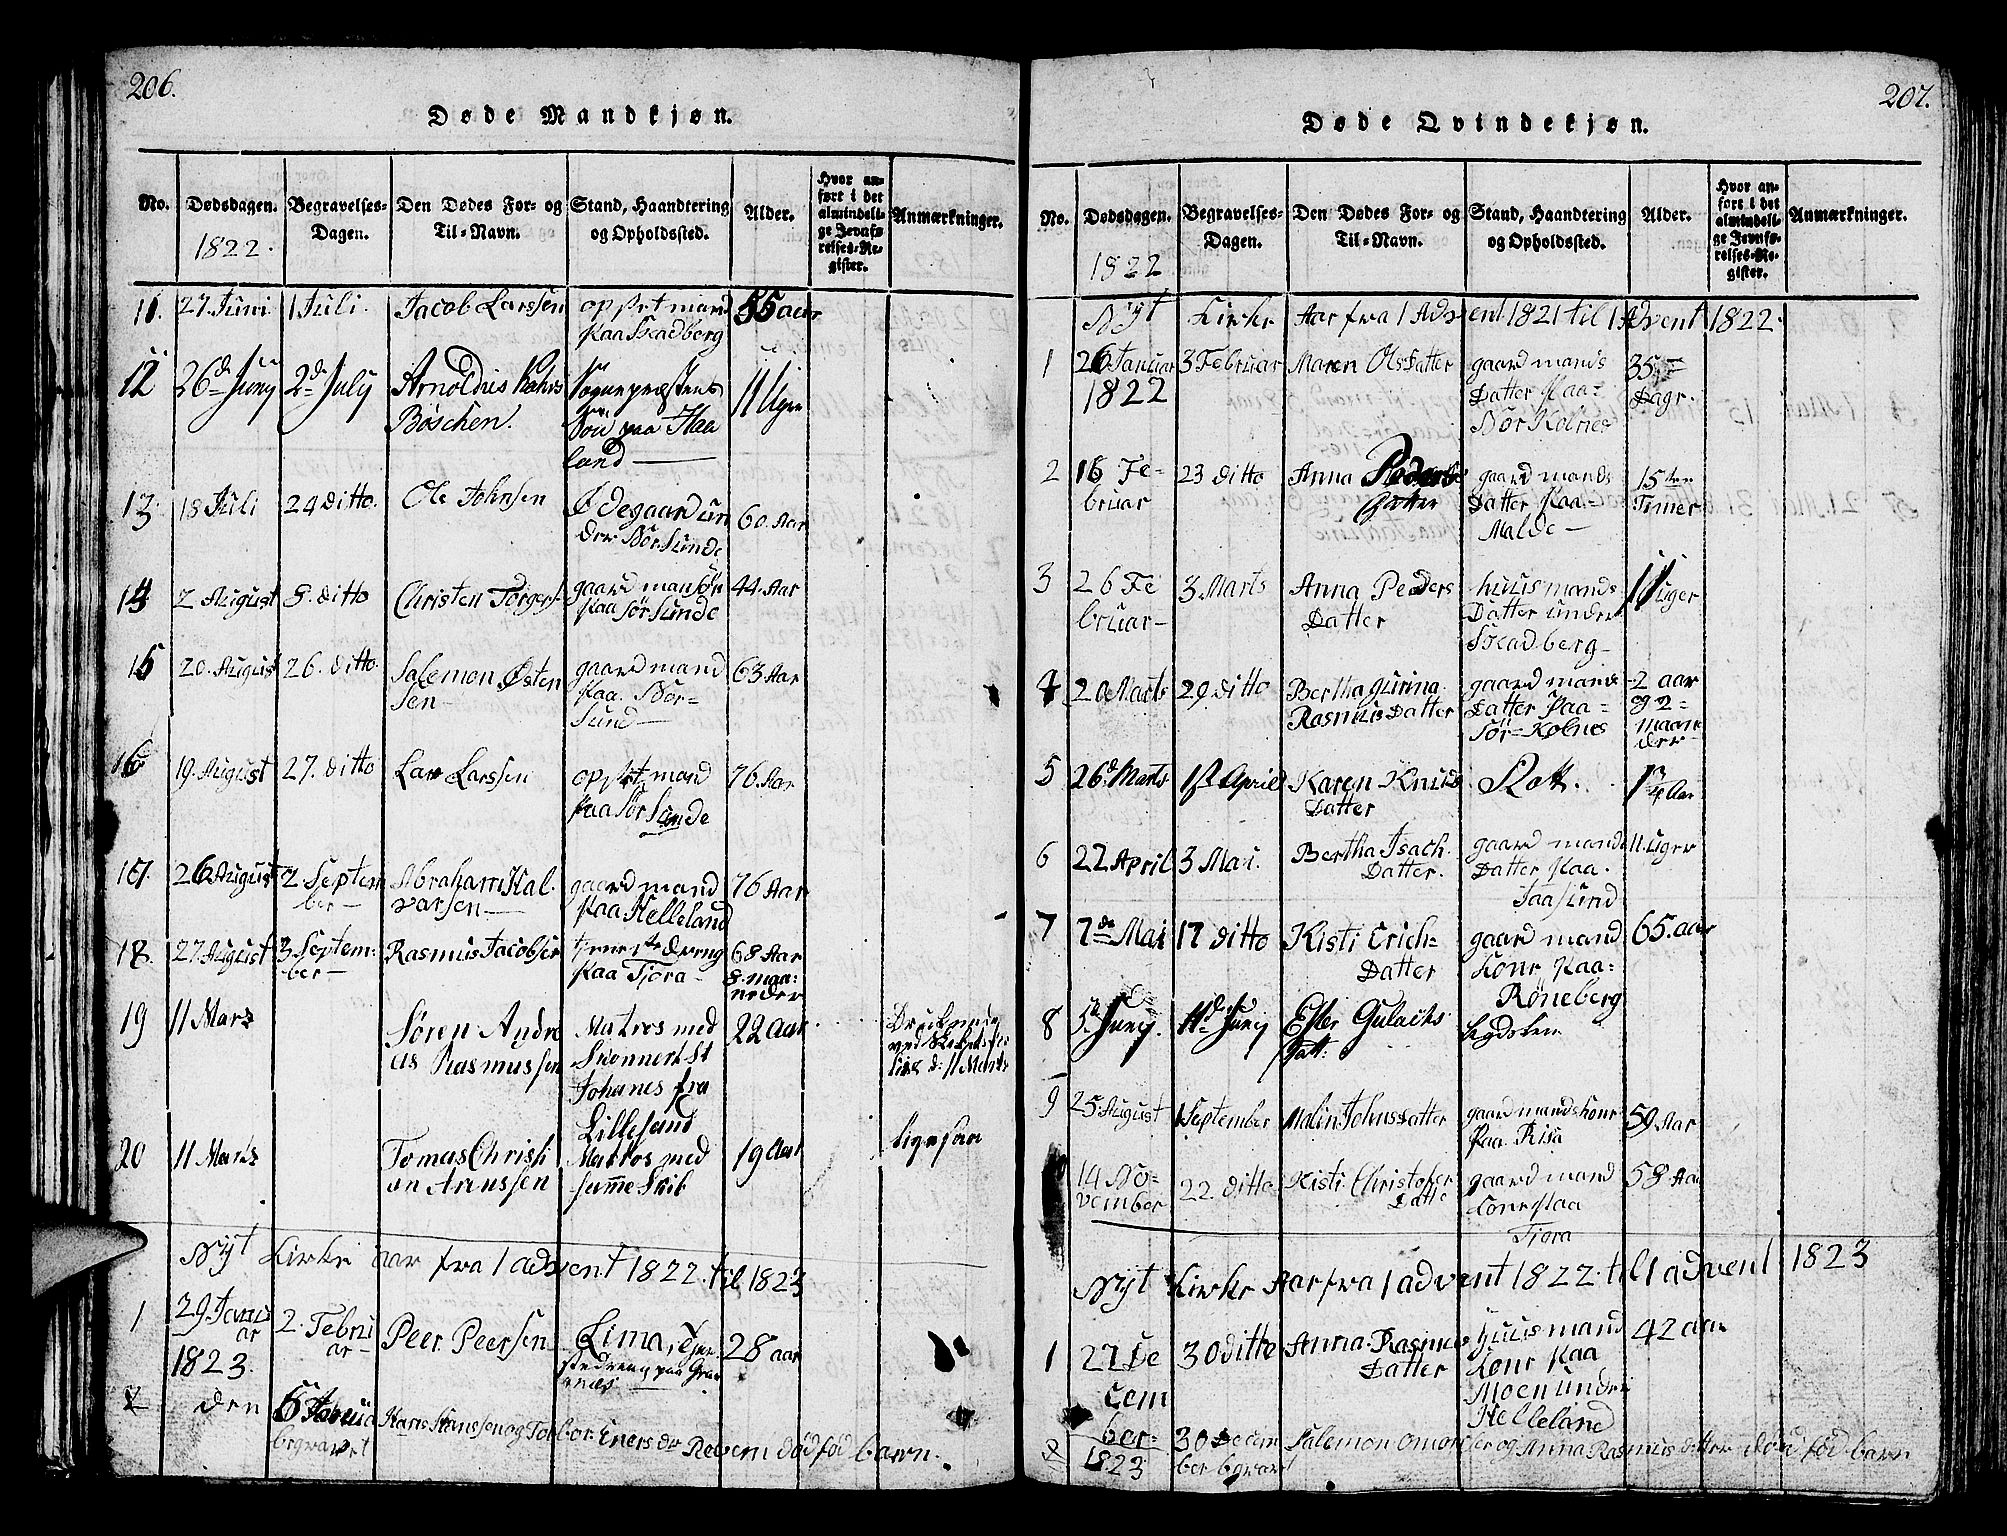 206.
Døde Mandkjøn.
No.
Dødsdagen.
1822.
Begravelses-
Dagen.
Den Dødes For- og
Til-Navn.
Stand, Haandtering
og Opholdssted.
Alder.
Hvor an-
ført i det
almindeli-
ge Jevnfø-
relses-Re-
gister.
Anmærkninger.
11. 27 Juni 1 Juli. Jacob Larssen
paa Skadberg
55 aar
12 26d Juny 2d July Arnoldus
Böschen.
Sognepræstens
Sön paa Haa
land
11 Uger
13. 18 Juli 24 ditto. Ole Johnsen
Ødegaard un
der Sör Sunde
60. Aar
14 2 August 8. ditto Christen Torgers
paa Sör Sunde
44. Aar
15 20. August 26. ditto Salemon Østen
sen
gaard mand
paa. Nor-
Sund
63 Aar
16 19. August 27. ditto Lars Larssen
mand
paa Sör Sunde
76. Aar
17. 26 August 2. Septem
ber
Abraham Hal
varsen
gaard mand
paa Helleland
76 Aar
18. 27 August 3 Septem-
ber
Rasmus Jacobsen
tieneste dreng
paa Tjora
68 Aar
8. maa-
neder
19 11 Mars Sören Andre
as Rasmussen
Matros med
Skonnert St
Johanes fra
Lillesand
22 aar
20 11 Marts Tomas Christi
an Arnussen
Matros med
samme Skib
19 Aar
ligesaa
Nyt Kirke aar fra 1 advent 1822. til 1823
1 29. Janu
ar
1823.
2. Febru
ar
Peer Peersen Lima, 28 aar
2 den 6 Februa
begravet
Hans Hanssen og Torbor Eners dr Revem död föd barn.
207.
Døde Qvindekjøn.
No.
Dødsdagen.
1822
Begravelses-
Dagen.
Den Dødes For- og
Til-Navn.
Stand, Haandtering
og Opholdssted.
Alder.
Hvor an-
ført i det
almindeli-
ge Jevnfø-
relses-Re-
gister.
Anmærkninger.
Nyt Kirke Aar fra 1 Advent 1821 til 1 Advent 1822.
1 26 Januar
1822
3 Februar Maren Olsdatter
gaard mands
Datter paa
Nör Kolnes
35
Dage.
2 16 Fe-
bruar
23 ditto Anna Peders
Datter
gaard mands
Datter paa
Malde
15ten
Timer
3 26 Fe
bruar
3 Marts Anna Peders
Datter
huus mands
Datter under
Skadberg
11 uger
4 20 Marts 29 ditto Bertha Gurina
Rasmus Datter
gaard mands
Datter paa
Sör-Kolnes
2 aar
og 2
maane
der
5 26d Marts 1st April Karen Knuds
Datter
Rott. 1¾ Aar
6 22 April 3 Mai. Bertha Isach
Datter.
gaard mands
Datter paa
Jaasund
11. uger
7 7de Mai 17 ditto Kisti Erich-
Datter
gaard mand
Kone paa
Röneberg
65. aar
8 5te Juny. 11d Juny Ester Gulachs
Datt:
9 25 August 1 September Malin Johnsdatter
gaard mands kone
paa. Risa
59 Aar
14 No-
vember
22 ditto Kisti Christofer
Datte
gaard mand
Kone paa
Tjora
58 Aar
Nyt Kirke Aar fra 1 advent 1822. til 1 advent 1823
1 27 De
cem
ber
30 ditto Anna Rasmus
Datter
Huusmand
Kone paa
Moen under
Helleland
42 aar
2 1823 30 Decem
ber begravet
Salemon Omon
sen og Anna Rasmus datter död föd barn